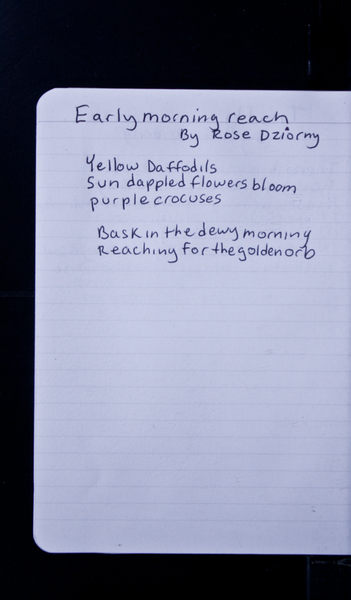 Early morning reach
By Rose Dziorny
Yellow Daffodils
Sun dappled flowers bloom
purple crocuses
Bask in the dewy morning
Reaching for the golden orb